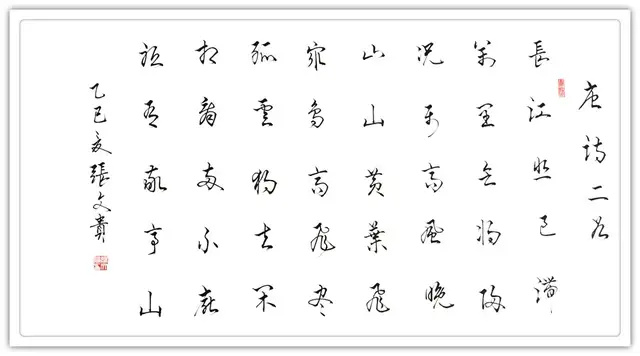 唐诗二首
長江悲已滯
萬里念將歸
况屬高風晚
山山黄葉飛
眾鳥高飛盡
孤雲獨去閑
相看兩不厭
祇有敬亭山
乙巳夏張文貴